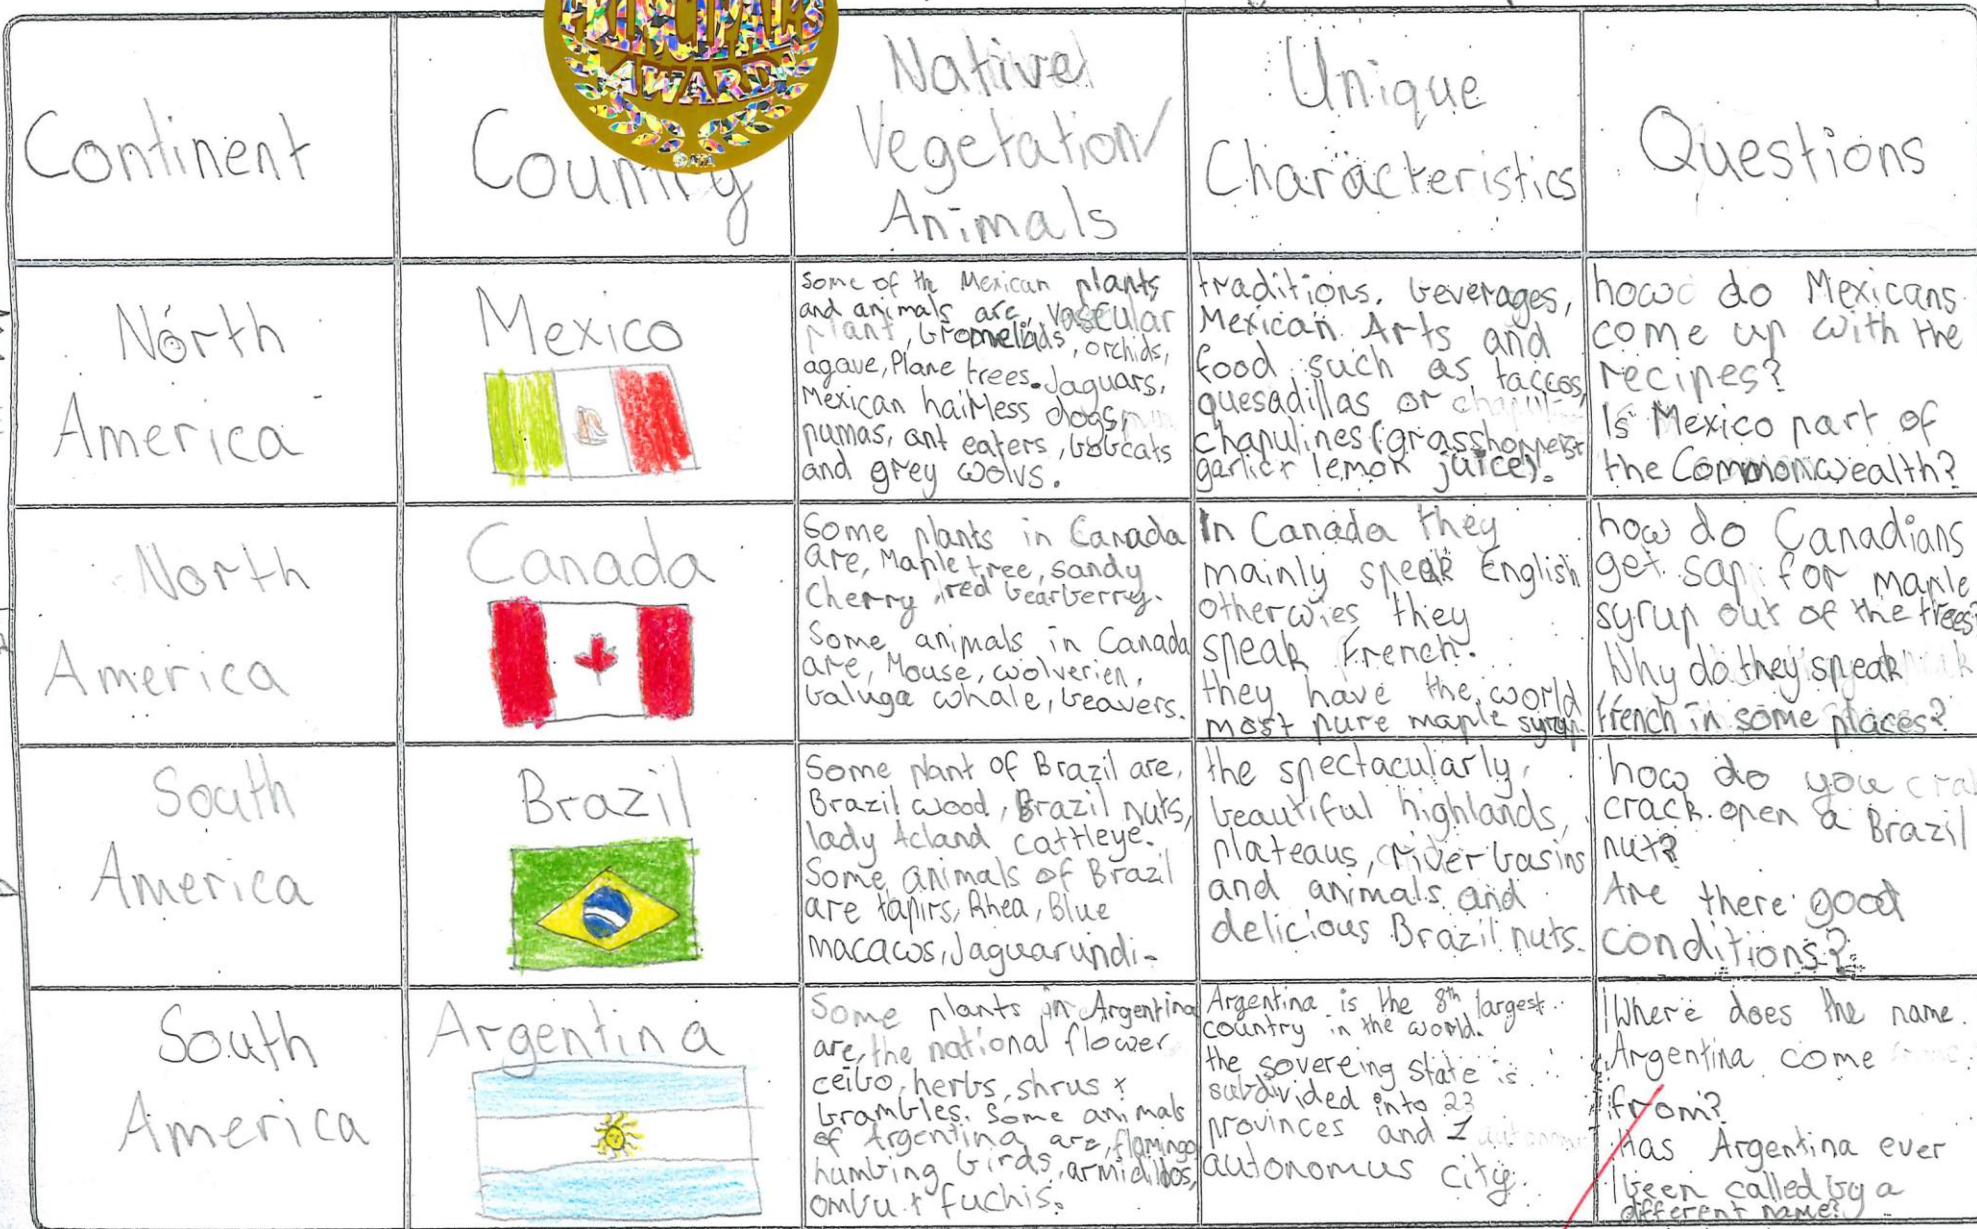 PRINCIPAL'S
AWARD
Continent
Country
Native
Vegetation/
Animals
Unique
Characteristics
Questions
North
America
Mexico
Some of the Mexican plants
and animals are, vascular
plant, bromeliads, orchids,
agave, Plane trees. Jaguars,
Mexican hairless dogs,
pumas, ant eaters, bobcats
and grey wolvs.
traditions, beverages,
Mexican Arts and
food such as taccos,
quesadillas or
chapulines (grasshoppers+
garlic+ lemon juice).
how do Mexicans
come up with the
recipes?
Is Mexico part of
the Commonwealth?
North
America
Canada
Some plants in Canada
are, Maple tree, sandy
Cherry, red bearberry.
Some animals in Canada
are, Mouse, wolverien,
baluga whale, beavers.
In Canada they
mainly speak English
otherwies they
speak French.
they have the world
most pure maple syrup.
how do Canadians
get sap for maple
syrup out of the trees?
Why do they speak
french in some places?
South
America
Brazil
Some plant of Brazil are,
Brazil wood, Brazil nuts,
lady Acland cattleye.
Some animals of Brazil
are tapirs, Rhea, Blue
macaws, Jaguarundi.
the spectacularly
beautiful highlands,
plateaus, river basins
and animals and
delicious Brazil nuts.
how do you
crack open a Brazil
nut?
Are there good
conditions?
South
America
Argentina
Some plants in Argentina
are, the national flower
ceibo, herbs, shrus +
brambles. Some animals
of Argentina are, flamingo
humbing birds, armidillos,
ombu + fuchis.
Argentina is the 8th largest
country in the world.
the sovereing state is
subdivided into 23
provinces and 1
autonomus city.
Where does the name
Argentina come
from?
Has Argentina ever
been called by a
different name?